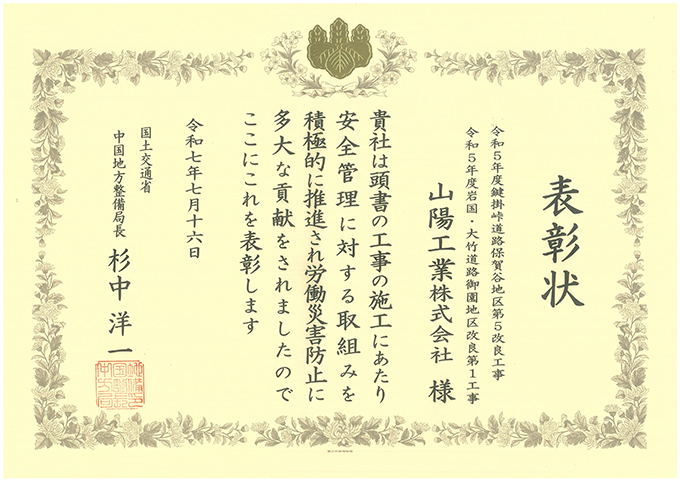 表彰状
令和５年度鍵掛峠道路保賀谷地区第５改良工事
令和５年度岩国・大竹道路御園地区改良第１工事
山陽工業株式会社 様
貴社は頭書の工事の施工にあたり
安全管理に対する取組みを
積極的に推進され労働災害防止に
多大な貢献をされましたので
ここにこれを表彰します
令和七年七月十六日
国土交通省
中国地方整備局長 杉中洋一